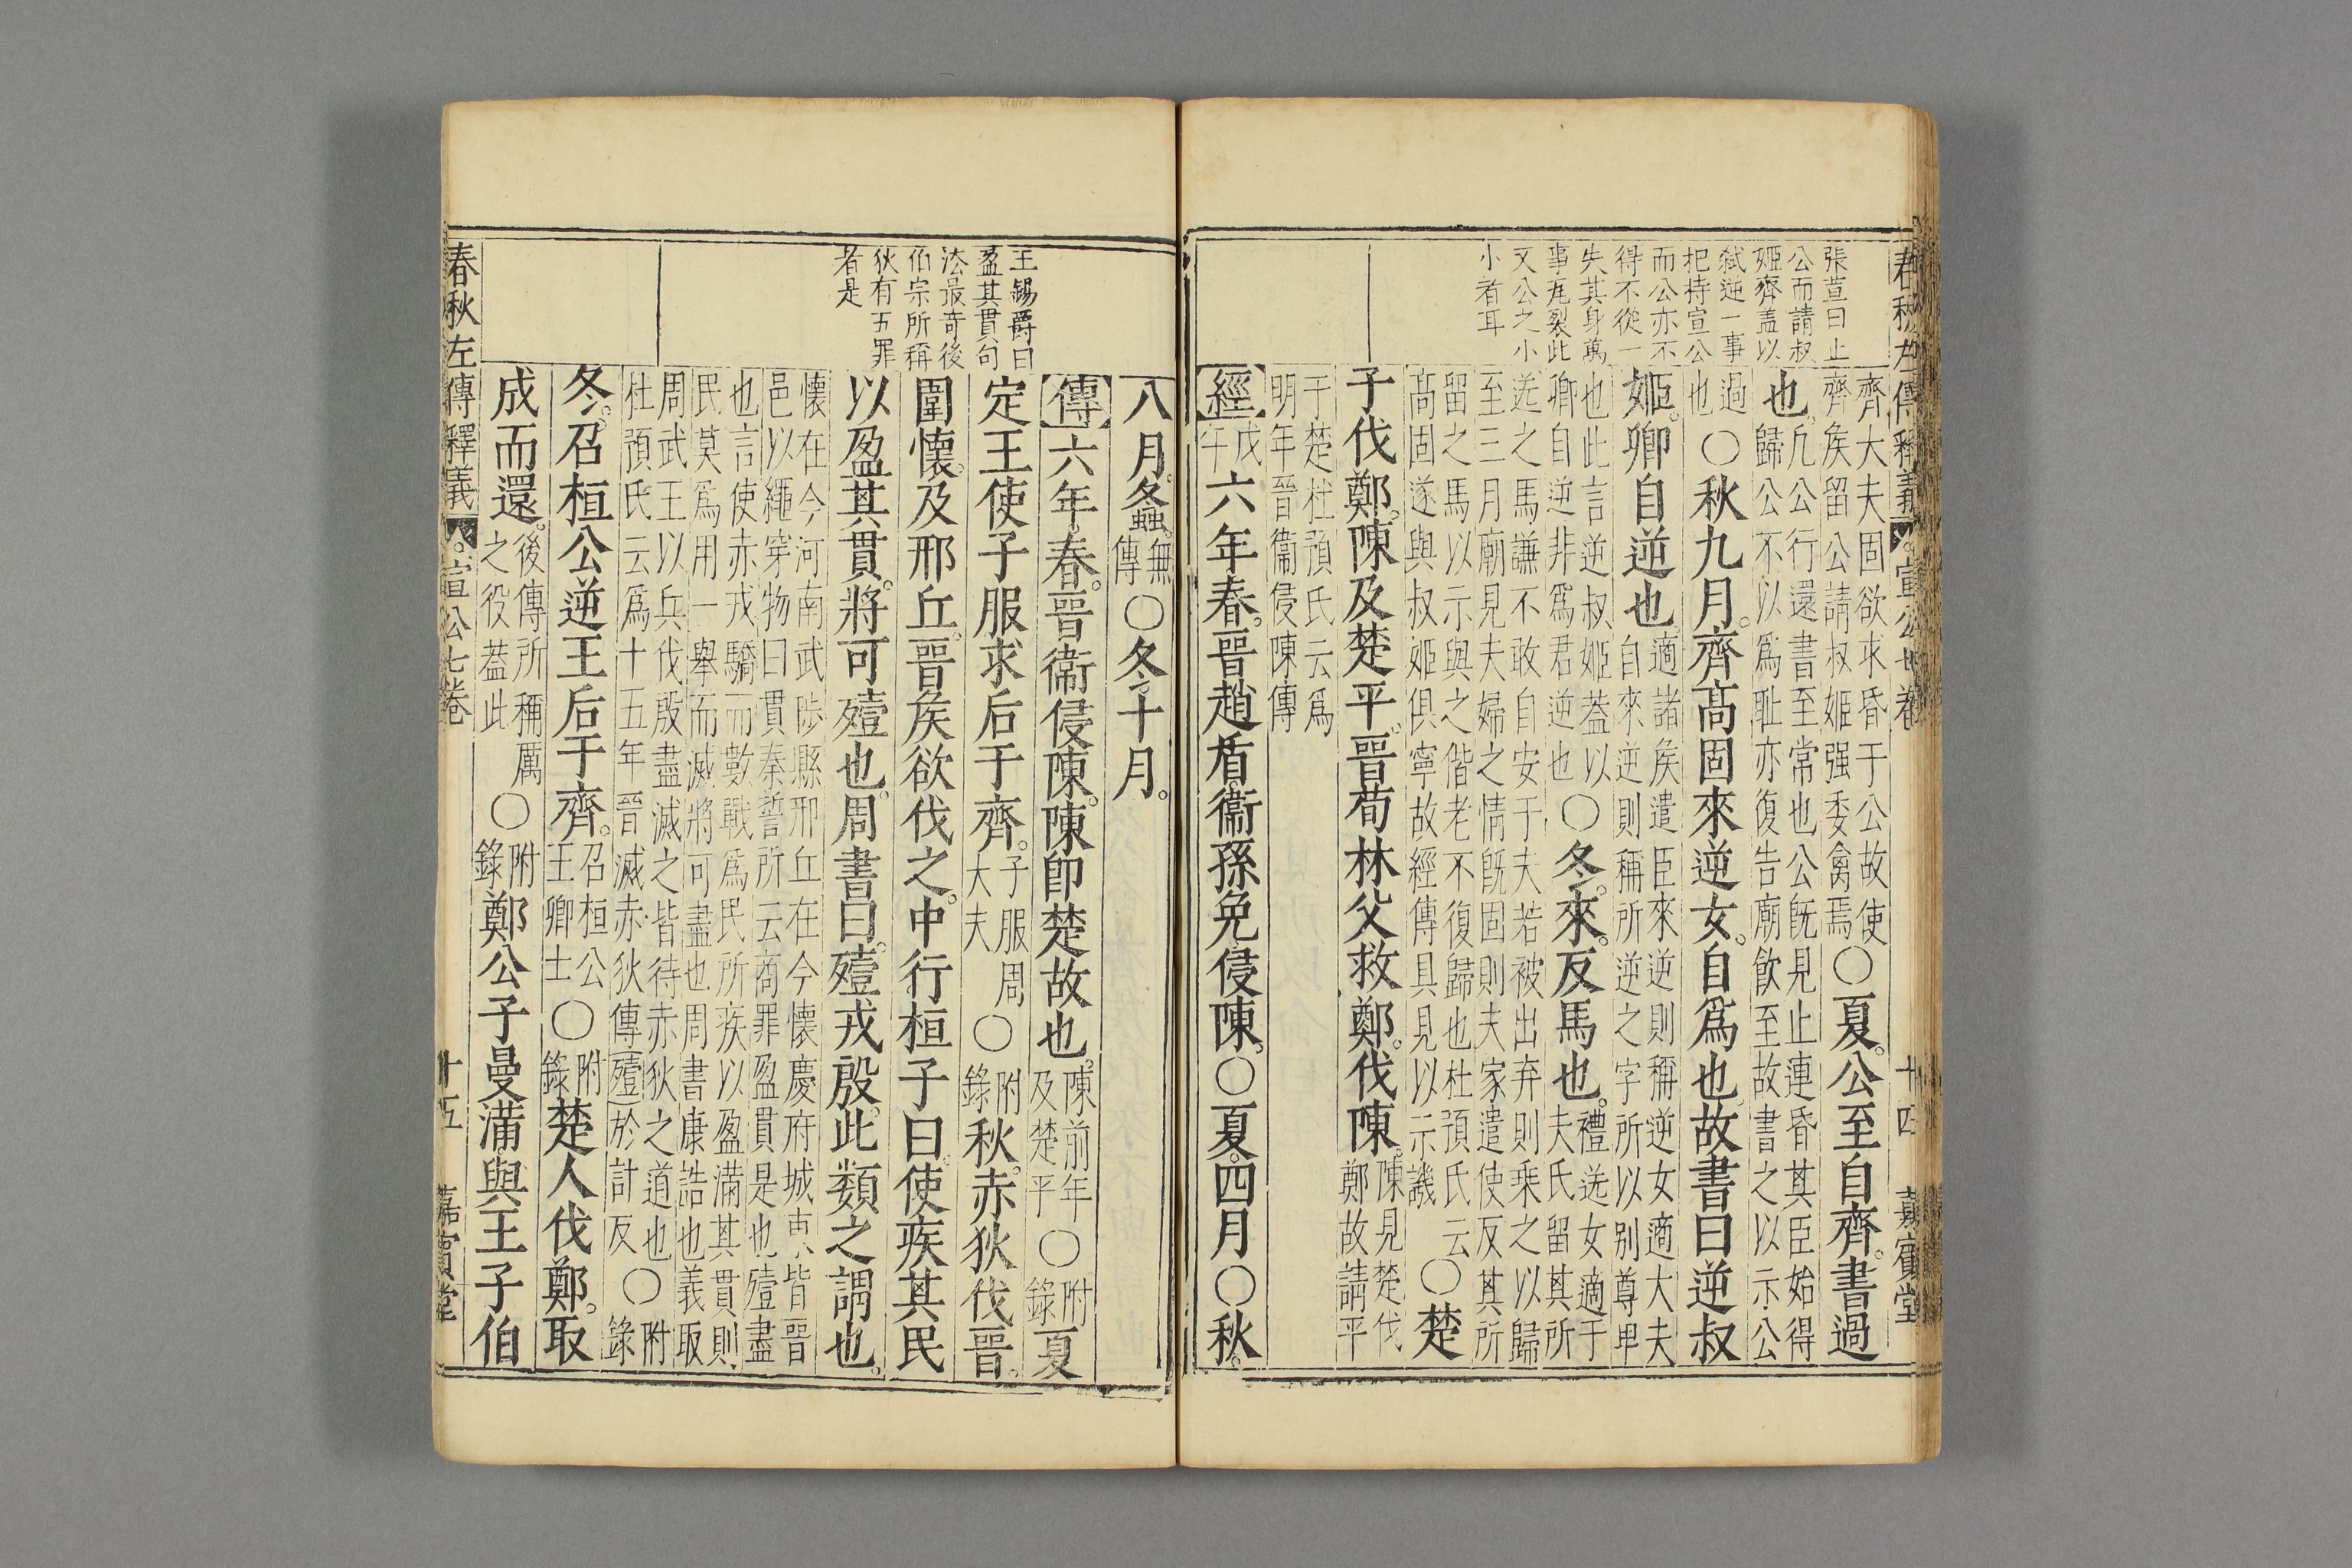 春秋左傳釋義 宣公七卷 十四 嘉賓堂
張萱曰止
公而請叔
姬齊蓋以
弑逆一事
把持宣公
而公亦不
得不從一
失其身萬
事瓦裂此
又公之小
小者耳
齊大夫固欲求昏于公故使
齊矦留公請叔姬强委禽焉
○夏。公至自齊。書過
也。
凡公行還書至常也公既見止連昏其臣始得
歸公不以爲耻亦復告廟飲至故書之以示公
過
也
○秋九月。齊高固來逆女。自爲也。故書曰逆叔
姬。卿自逆也
適諸矦遣臣來逆則稱逆女適大夫
自來逆則稱所逆之字所以别尊卑
也此言逆叔姬蓋以
卿自逆非爲君逆也
○冬。來。反馬也。
禮送女適于
夫氏留其所
送之馬謙不敢自安于夫若被出弃則乘之以歸
至三月廟見夫婦之情既固則夫家遣使反其所
留之馬以示與之偕老不復歸也杜預氏云
高固遂與叔姬俱寧故經傳具見以示譏
○楚
子伐鄭。陳及楚平。晉荀林父救鄭。伐陳。
陳見楚伐
鄭故請平
于楚杜預氏云爲
明年晉衞侵陳傳
經
戊
午
六年。春。晉趙盾衞孫免侵陳。○夏。四月○秋。
八月。冬螽。
無
傳
○冬十月。
傳六年。春。晉衞侵陳。陳即楚故也。
陳前年
及楚平
○
附
錄
夏
定王使子服求后于齊。
子服周
大夫
○
附
錄
秋。赤狄伐晉。
圍懷。及邢丘。晉矦欲伐之。中行桓子曰。使疾其民
以盈其貫。將可殪也。周書曰。殪戎殷。此類之謂也。
懷在今河南武陟縣邢丘在今懷慶府城東皆晉
邑以繩穿物曰貫秦誓所云商罪盈貫是也殪盡
也言使赤戎驕而數戰爲民所疾以盈滿其貫則
民莫爲用一舉而滅將可盡也周書康誥也義取
周武王以兵伐殷盡滅之皆待赤狄之道也
杜預氏云爲十五年晉滅赤狄傳殪於計反
○
附
錄
冬。召桓公逆王后于齊。
召桓公
王卿士
○
附
錄
楚人伐鄭。取
成而還。
後傳所稱厲
之役蓋此
○
附
錄
鄭公子曼滿與王子伯
王錫爵曰
盈其貫句
法最奇後
伯宗所稱
狄有五罪
者是
春秋左傳釋義 宣公七卷 十五 嘉賓堂